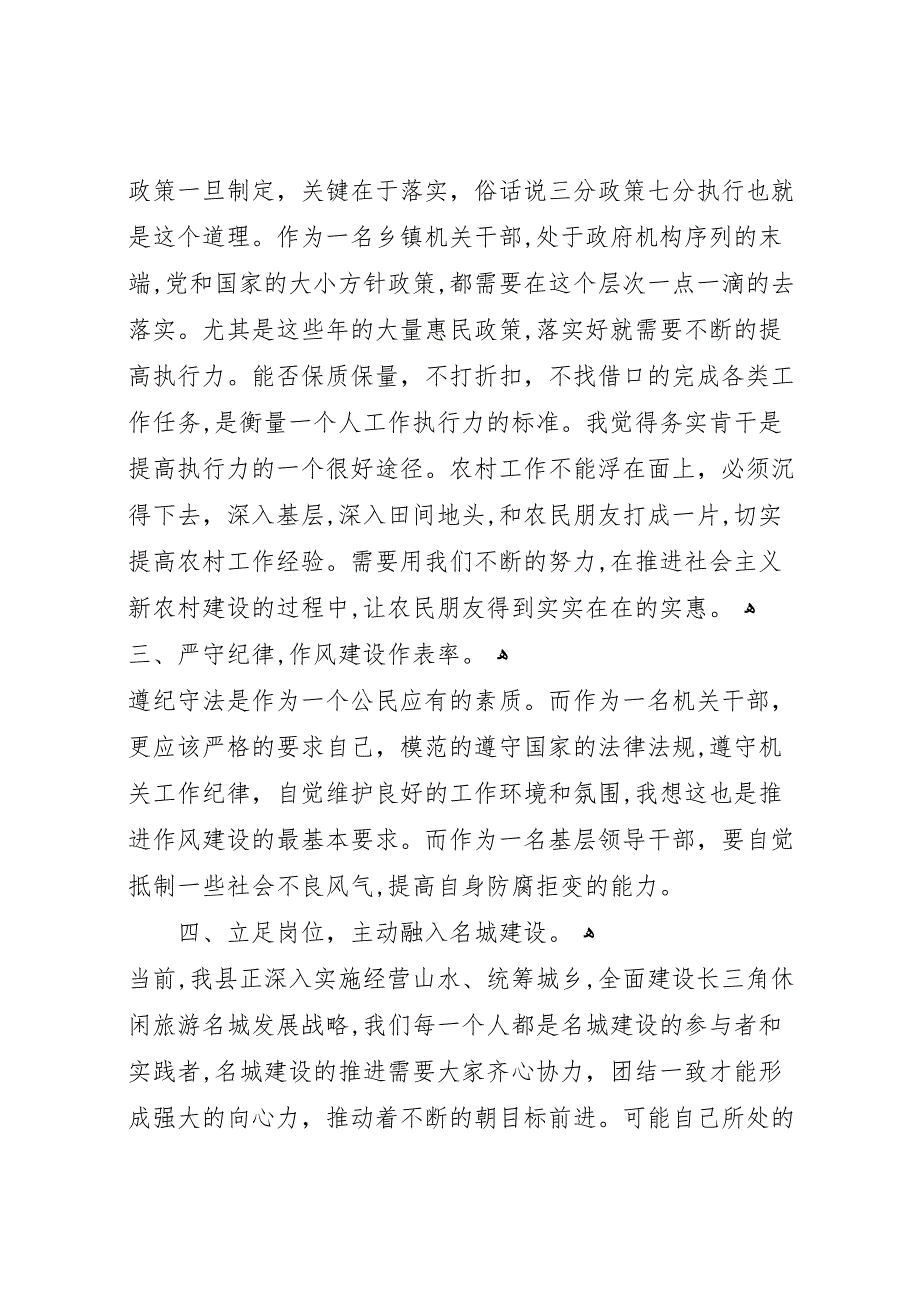 政策一旦制定，关键在于落实，俗话说三分政策七分执行也就
是这个道理。作为一名乡镇机关干部,处于政府机构序列的末
端,党和国家的大小方针政策,都需要在这个层次一点一滴的去
落实。尤其是这些年的大量惠民政策,落实好就需要不断的提
高执行力。能否保质保量，不打折扣，不找借口的完成各类工
作任务,是衡量一个人工作执行力的标准。我觉得务实肯干是
提高执行力的一个很好途径。农村工作不能浮在面上，必须沉
得下去，深入基层,深入田间地头,和农民朋友打成一片,切实
提高农村工作经验。需要用我们不断的努力,在推进社会主义
新农村建设的过程中,让农民朋友得到实实在在的实惠。 ﻫ
三、严守纪律,作风建设作表率。 ﻫ
遵纪守法是作为一个公民应有的素质。而作为一名机关干部，
更应该严格的要求自己，模范的遵守国家的法律法规,遵守机
关工作纪律，自觉维护良好的工作环境和氛围,我想这也是推
进作风建设的最基本要求。而作为一名基层领导干部，要自觉
抵制一些社会不良风气,提高自身防腐拒变的能力。
四、立足岗位，主动融入名城建设。 ﻫ
当前,我县正深入实施经营山水、统筹城乡,全面建设长三角休
闲旅游名城发展战略,我们每一个人都是名城建设的参与者和
实践者,名城建设的推进需要大家齐心协力，团结一致才能形
成强大的向心力，推动着不断的朝目标前进。可能自己所处的